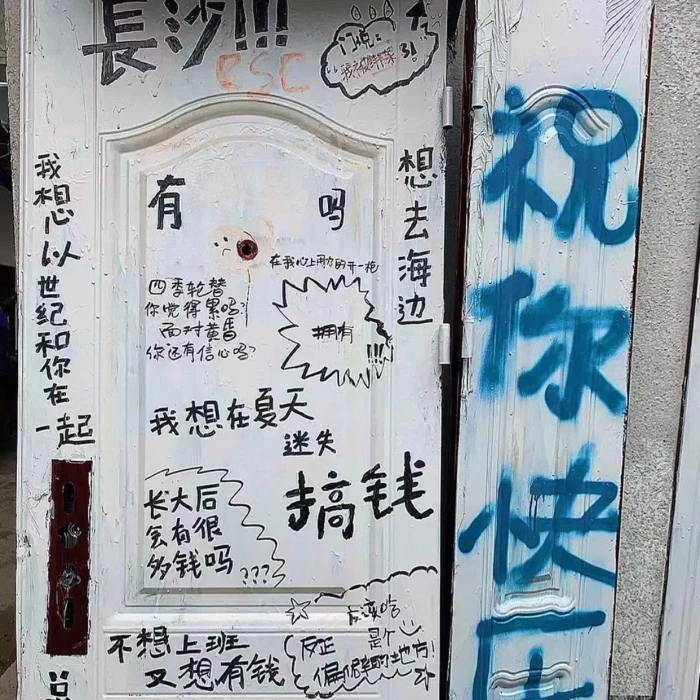 長沙!!!
CSC
我想以世纪和你在一起
有 吗
想去海边
在我心上用力的开一枪
四季轮替
你觉得累吗?
面对黄昏
你还有信心吗?
拥有
!!!
我想在夏天
迷失
搞钱
长大后
会有很
多钱吗
???
不想上班
又想有钱
反正
是个
的地方!
祝你快